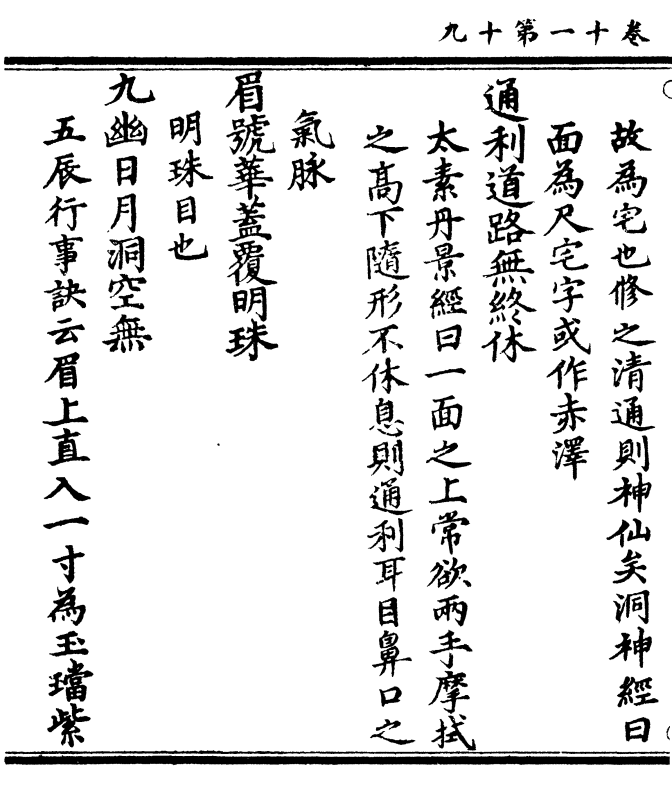 卷十一第十九
故為宅也修之清通則神仙矣洞神經曰
面為尺宅字或作赤澤
通利道路無終休
太素丹景經曰一面之上常欲兩手摩拭
之高下隨形不休息則通利耳目鼻口之
氣脉
眉號華蓋覆明珠
明珠目也
九幽日月洞空無
五辰行事訣云眉上直入一寸為玉璫紫